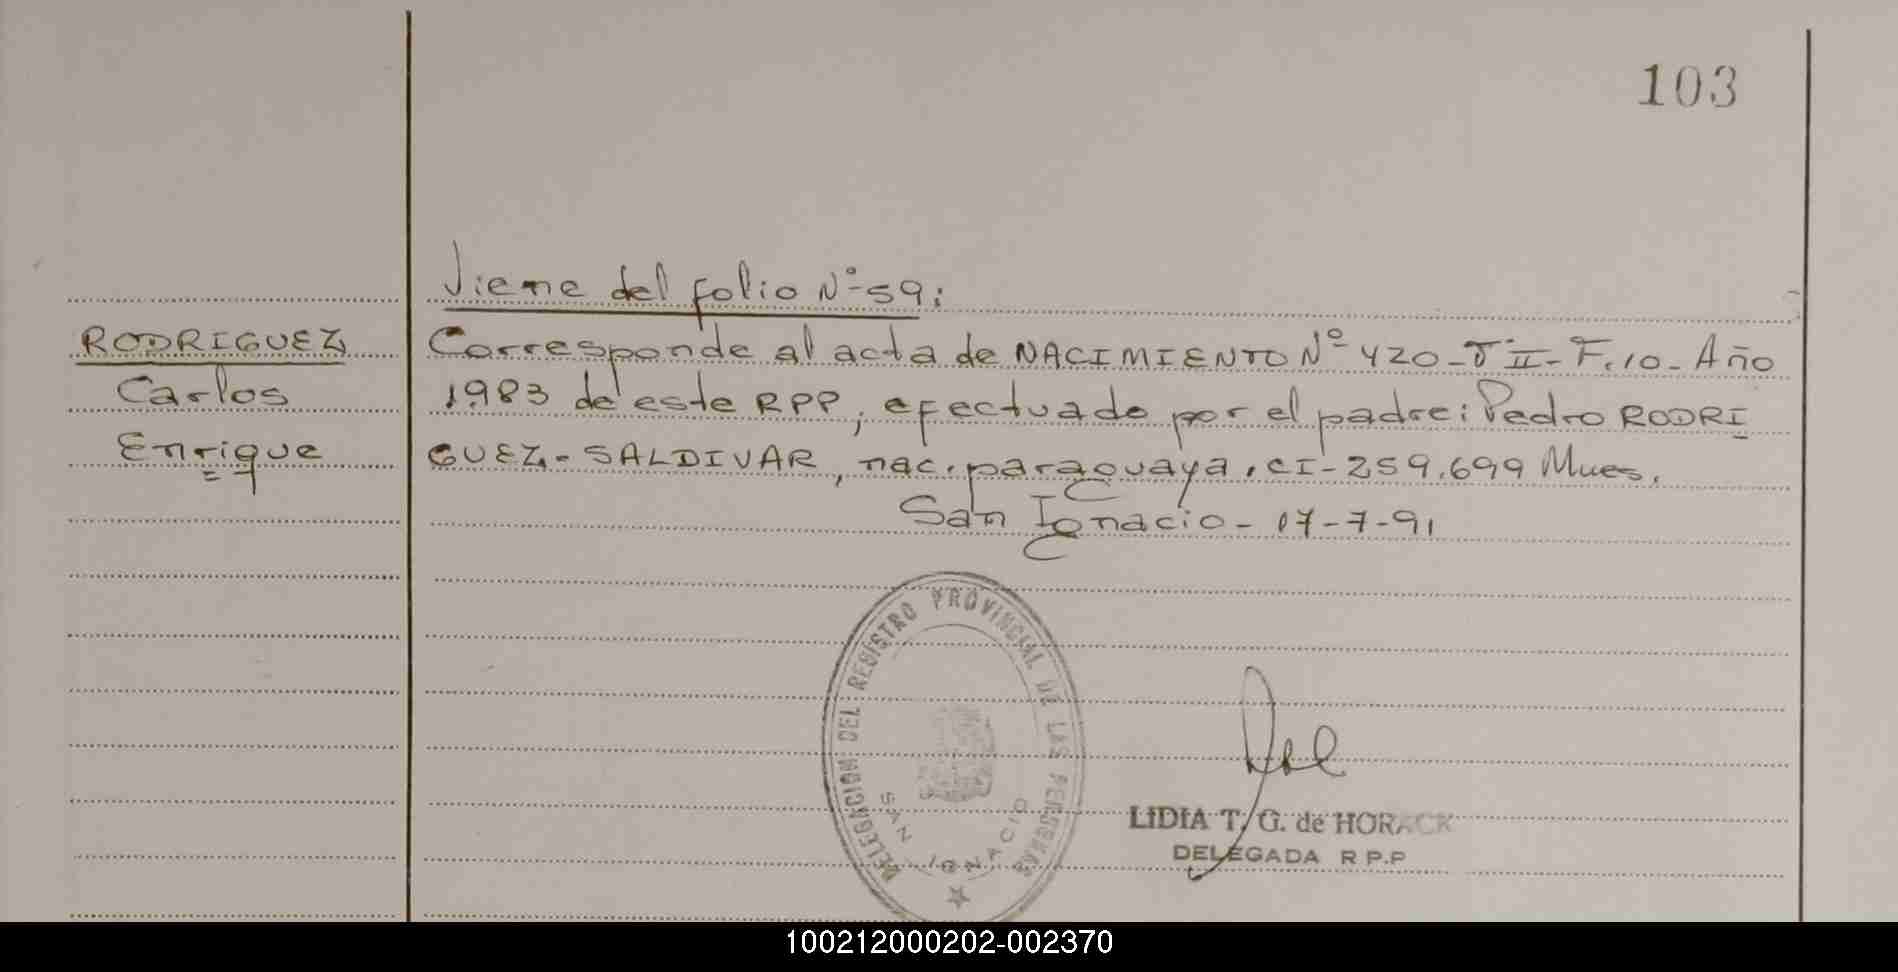 103
Viene del folio Nº 59:
RODRIGUEZ
Carlos
Enrique
Corresponde al acta de NACIMIENTO Nº 420 - T II - F. 10 - Año
1983 de este RPP, efectuado por el padre: Pedro RODRI
GUEZ - SALDIVAR, nac. paraguaya, CI - 259.699 Mnes.
San Ignacio - 17-7-91
DELEGACION DEL REGISTRO PROVINCIAL DE LAS PERSONAS
SAN IGNACIO
LIDIA T. G. de HORACK
DELEGADA R P.P
100212000202-002370